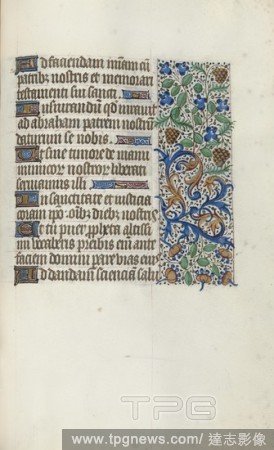 Ad faciendam miam cū
patribz nostris et memorari
testamenti sui sancti.
Iusiurandū qd iuravit
ad abraham patrem nostrū
daturum se nobis.
Ut sine timore de manu
inimicor nostror liberati
serviamus illi
In sanctitate et iusticia
coram ipo oībz diebz nostris
Et tu puer ppheta altissi
mi vocaberis preibis enī ante
faciem domini parare vias eius
Ad dandam sciencā salu
TPG
www.tpgnews.com / 達志影像